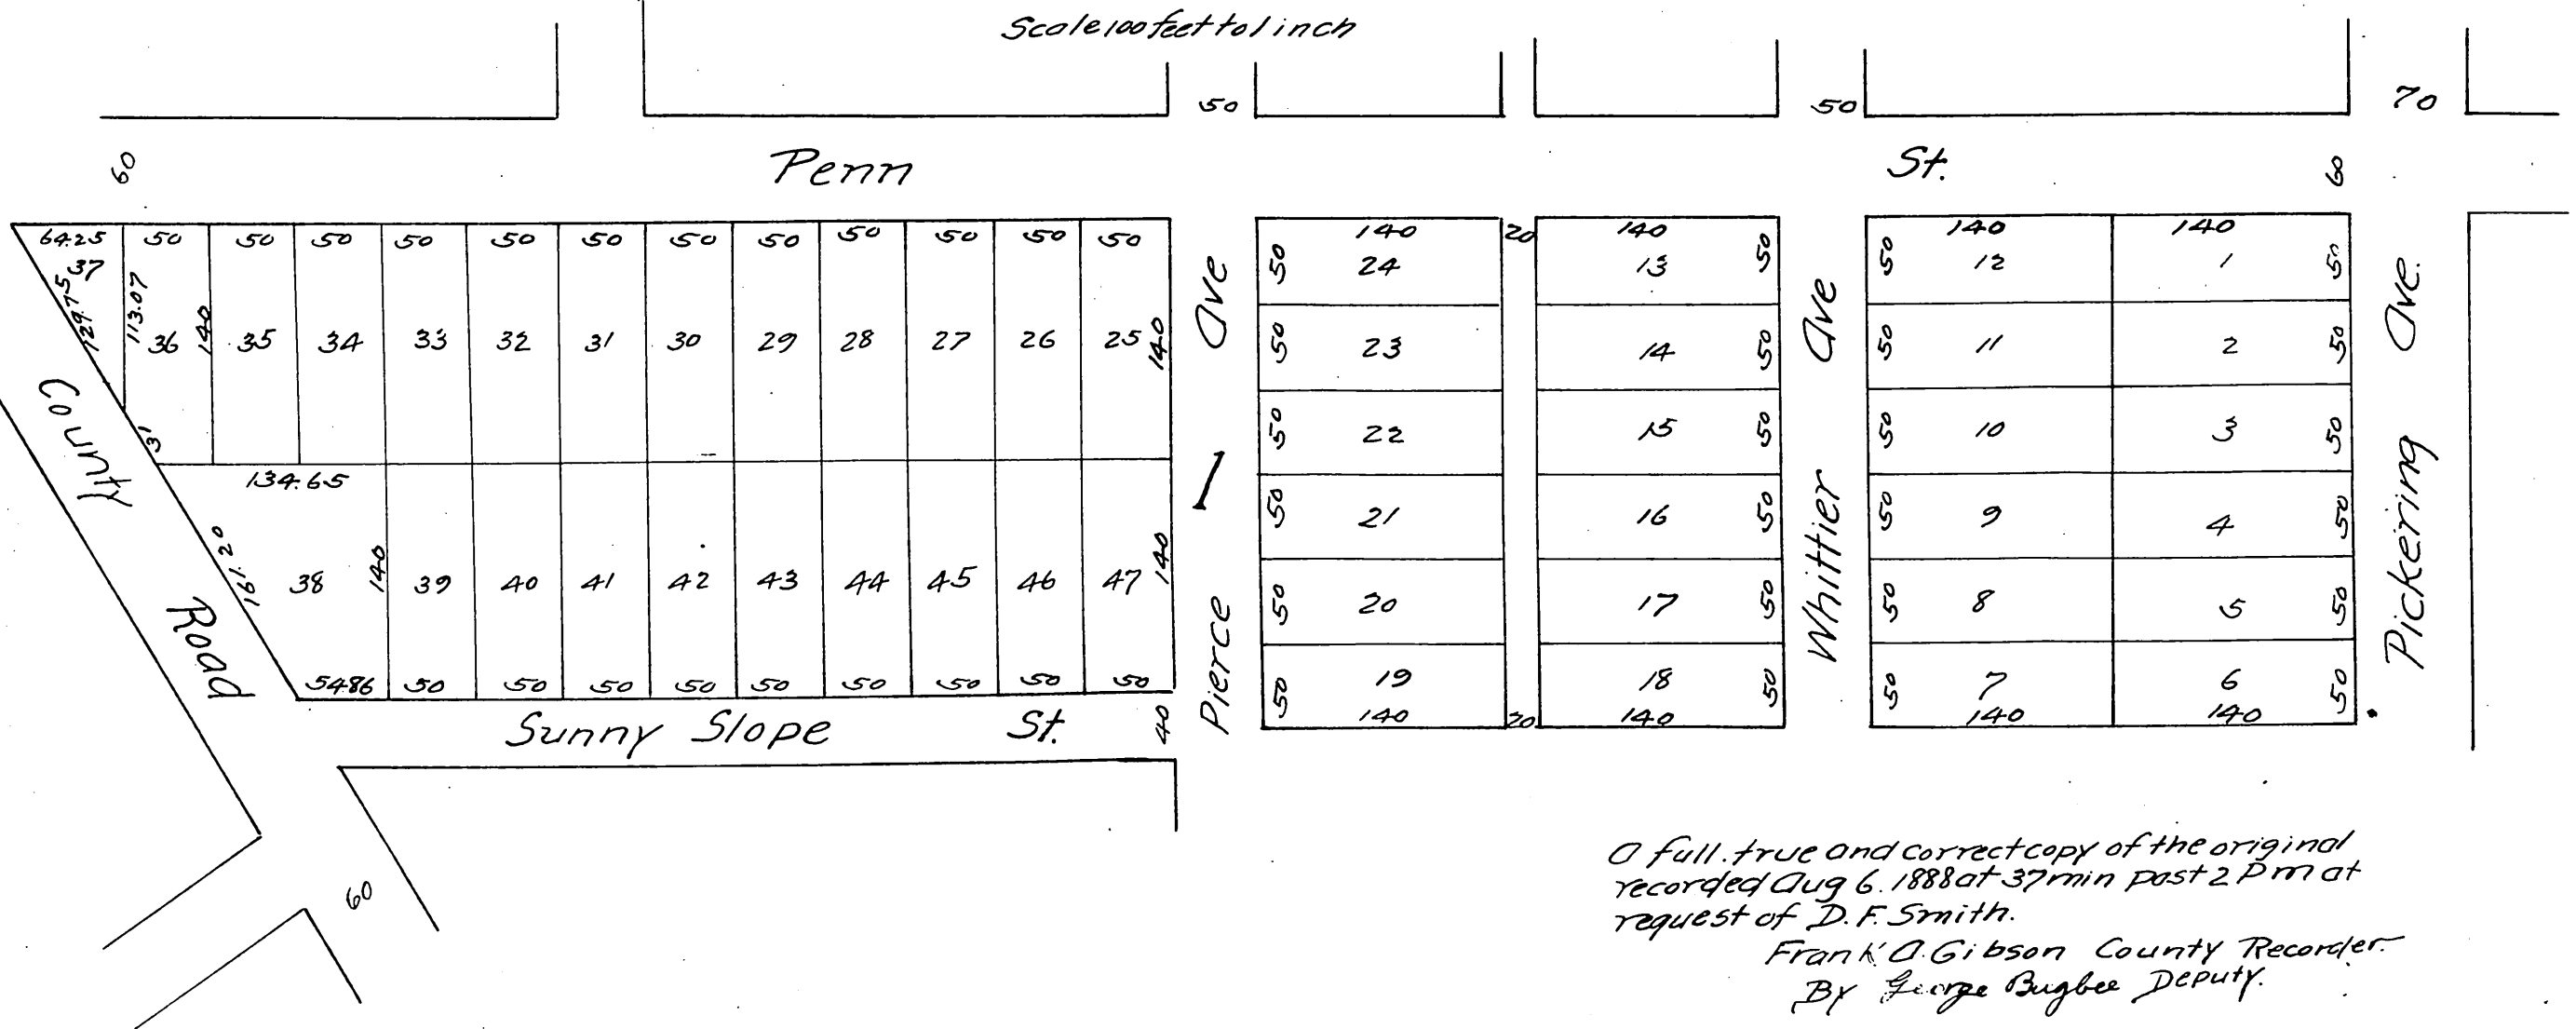 Scale 100 feet to 1 inch
50 50 70
60 Penn St. 60
64.25 50 50 50 50 50 50 50 50 50 50 50 50
37
129.75
113.07
36 140 35 34 33 32 31 30 29 28 27 26 25 140
31
134.65
161.20
38 140 39 40 41 42 43 44 45 46 47 140
54.86 50 50 50 50 50 50 50 50 50
County Road
Sunny Slope St. 40
60
Pierce Ave
140 20 140
50 24 13 50
50 23 14 50
50 22 15 50
50 21 16 50
50 20 17 50
50 19 18 50
140 20 140
Whittier Ave
140 140
50 12 1 50
50 11 2 50
50 10 3 50
50 9 4 50
50 8 5 50
50 7 6 50
140 140
Pickering Ave.
A full. true and correct copy of the original
recorded Aug 6. 1888 at 37 min past 2 P m at
request of D. F. Smith.
Frank A. Gibson County Recorder.
By George Bugbee Deputy.